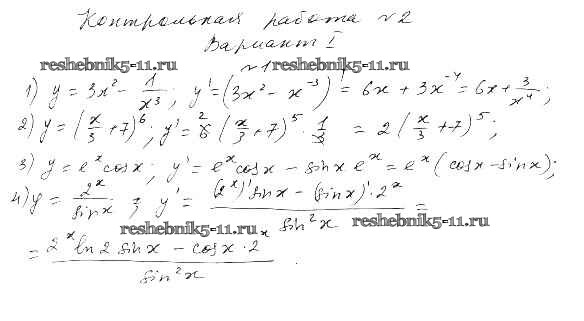 Контрольная работа №2
Вариант I
reshebnik5-11.ru №1 reshebnik5-11.ru
1) y = 3x² - 1/x³; y' = (3x² - x⁻³)' = 6x + 3x⁻⁴ = 6x + 3/x⁴;
2) y = (x/3 + 7)⁶; y' = 6 (x/3 + 7)⁵ · 1/3 = 2 (x/3 + 7)⁵;
3) y = eˣ cos x; y' = eˣ cos x - sin x eˣ = eˣ (cos x - sin x);
4) y = 2ˣ/sin x; y' = ((2ˣ)' sin x - (sin x)' · 2ˣ)/sin² x =
reshebnik5-11.ru reshebnik5-11.ru
= (2ˣ ln 2 sin x - cos x · 2ˣ)/sin² x.